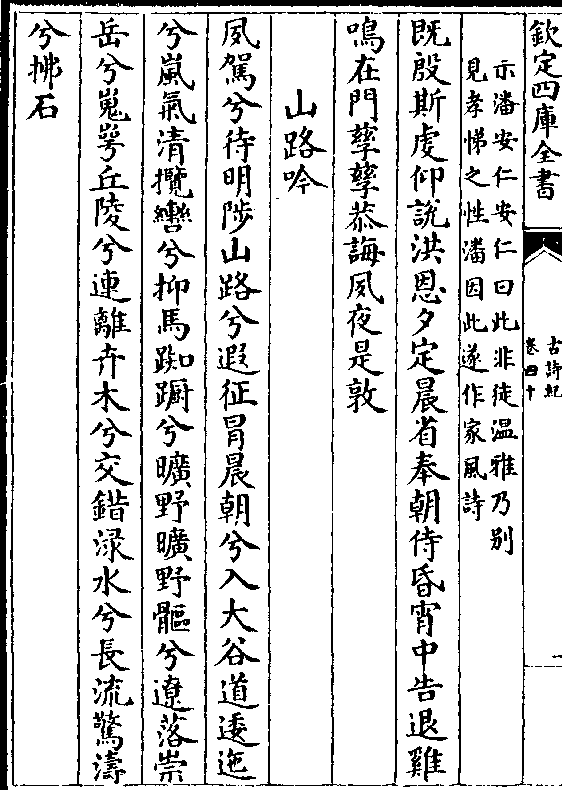 欽定四庫全書
古詩紀
卷四十
示潘安仁安仁曰此非徒温雅乃别
見孝悌之性潘因此遂作家風詩
既殷斯䖍仰說洪恩夕定晨省奉朝侍昏宵中告退雞
鳴在門孳孳恭誨夙夜是敦
山路吟
夙駕兮待明陟山路兮遐征冐晨朝兮入大谷道逶迤
兮嵐氣清攬轡兮抑馬踟蹰兮曠野曠野䮍兮遼落崇
岳兮嵬崿丘陵兮連離卉木兮交錯渌水兮長流驚濤
兮拂石